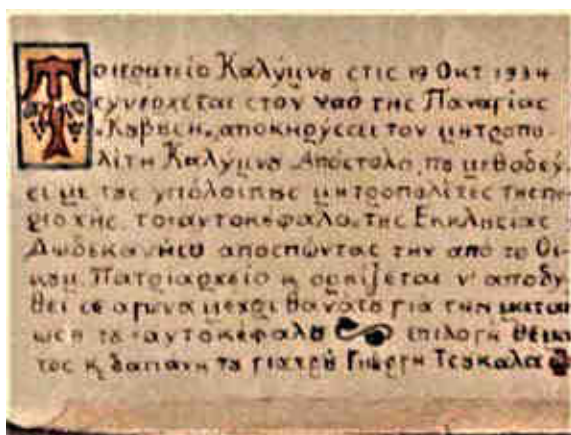 Το ιερατείο Καλύμνȣ στις 19 Οκτ 1934
συνέρχεται στον ναό της Παναγίας
αποκηρύσσει τον μητροπο-
λίτη Καλύμνȣ Απόστολο, πȣ μεθοδεύ-
ει με τȣς υπόλοιπȣς μητροπολίτες της πε-
ριοχής, το "αυτοκέφαλο" της Εκκλησίας
Δωδεκανήσȣ αποσπώντας την από το Οι-
κȣμ. Πατριαρχείο ϗ ορκίζεται ν' αποδυ-
θεί σε αγώνα μέχρι θανάτȣ για την ματαί-
ωση τȣ "αυτοκέφαλȣ" επιλογή θέμα-
τος ϗ δαπάνη τȣ γιατρȣ Γιώργη Τσȣκαλά